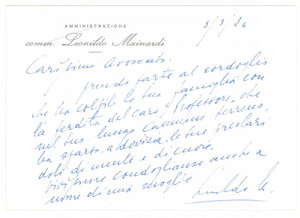 AMMINISTRAZIONE
comm. Leonildo Mainardi
Carissimo Avvocato,
prendo parte al cordoglio
che ha colpito la sua famiglia con
la perdita del caro professore, che
nel suo lungo cammino terreno,
ha sparso, a dovizia, le sue
doti di mente e di cuore.
condoglianze anche a
nome di mia moglie